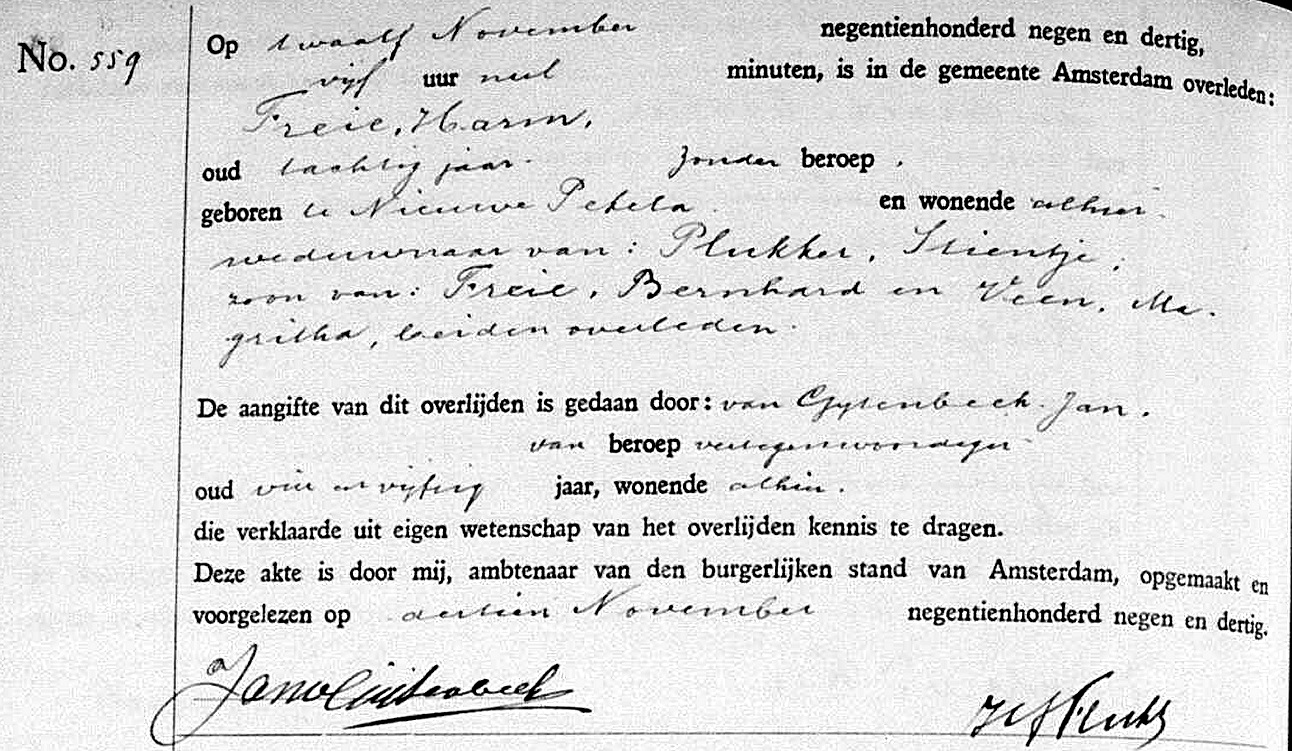 No. 559
Op twaalf November negentienhonderd negen en dertig,
vijf uur nul minuten, is in de gemeente Amsterdam overleden:
Freie, Harm,
oud tachtig jaar. zonder beroep,
geboren te Nieuwe Pekela en wonende alhier.
weduwnaar van: Plukker, Stientje,
zoon van: Freie, Bernhard en Veen, Ma-
gritha, beiden overleden.
De aangifte van dit overlijden is gedaan door: van Gytenbeek Jan.
van beroep vertegenwoordiger
oud vier en vijftig jaar, wonende alhier.
die verklaarde uit eigen wetenschap van het overlijden kennis te dragen.
Deze akte is door mij, ambtenaar van den burgerlijken stand van Amsterdam, opgemaakt en
voorgelezen op dertien November negentienhonderd negen en dertig.